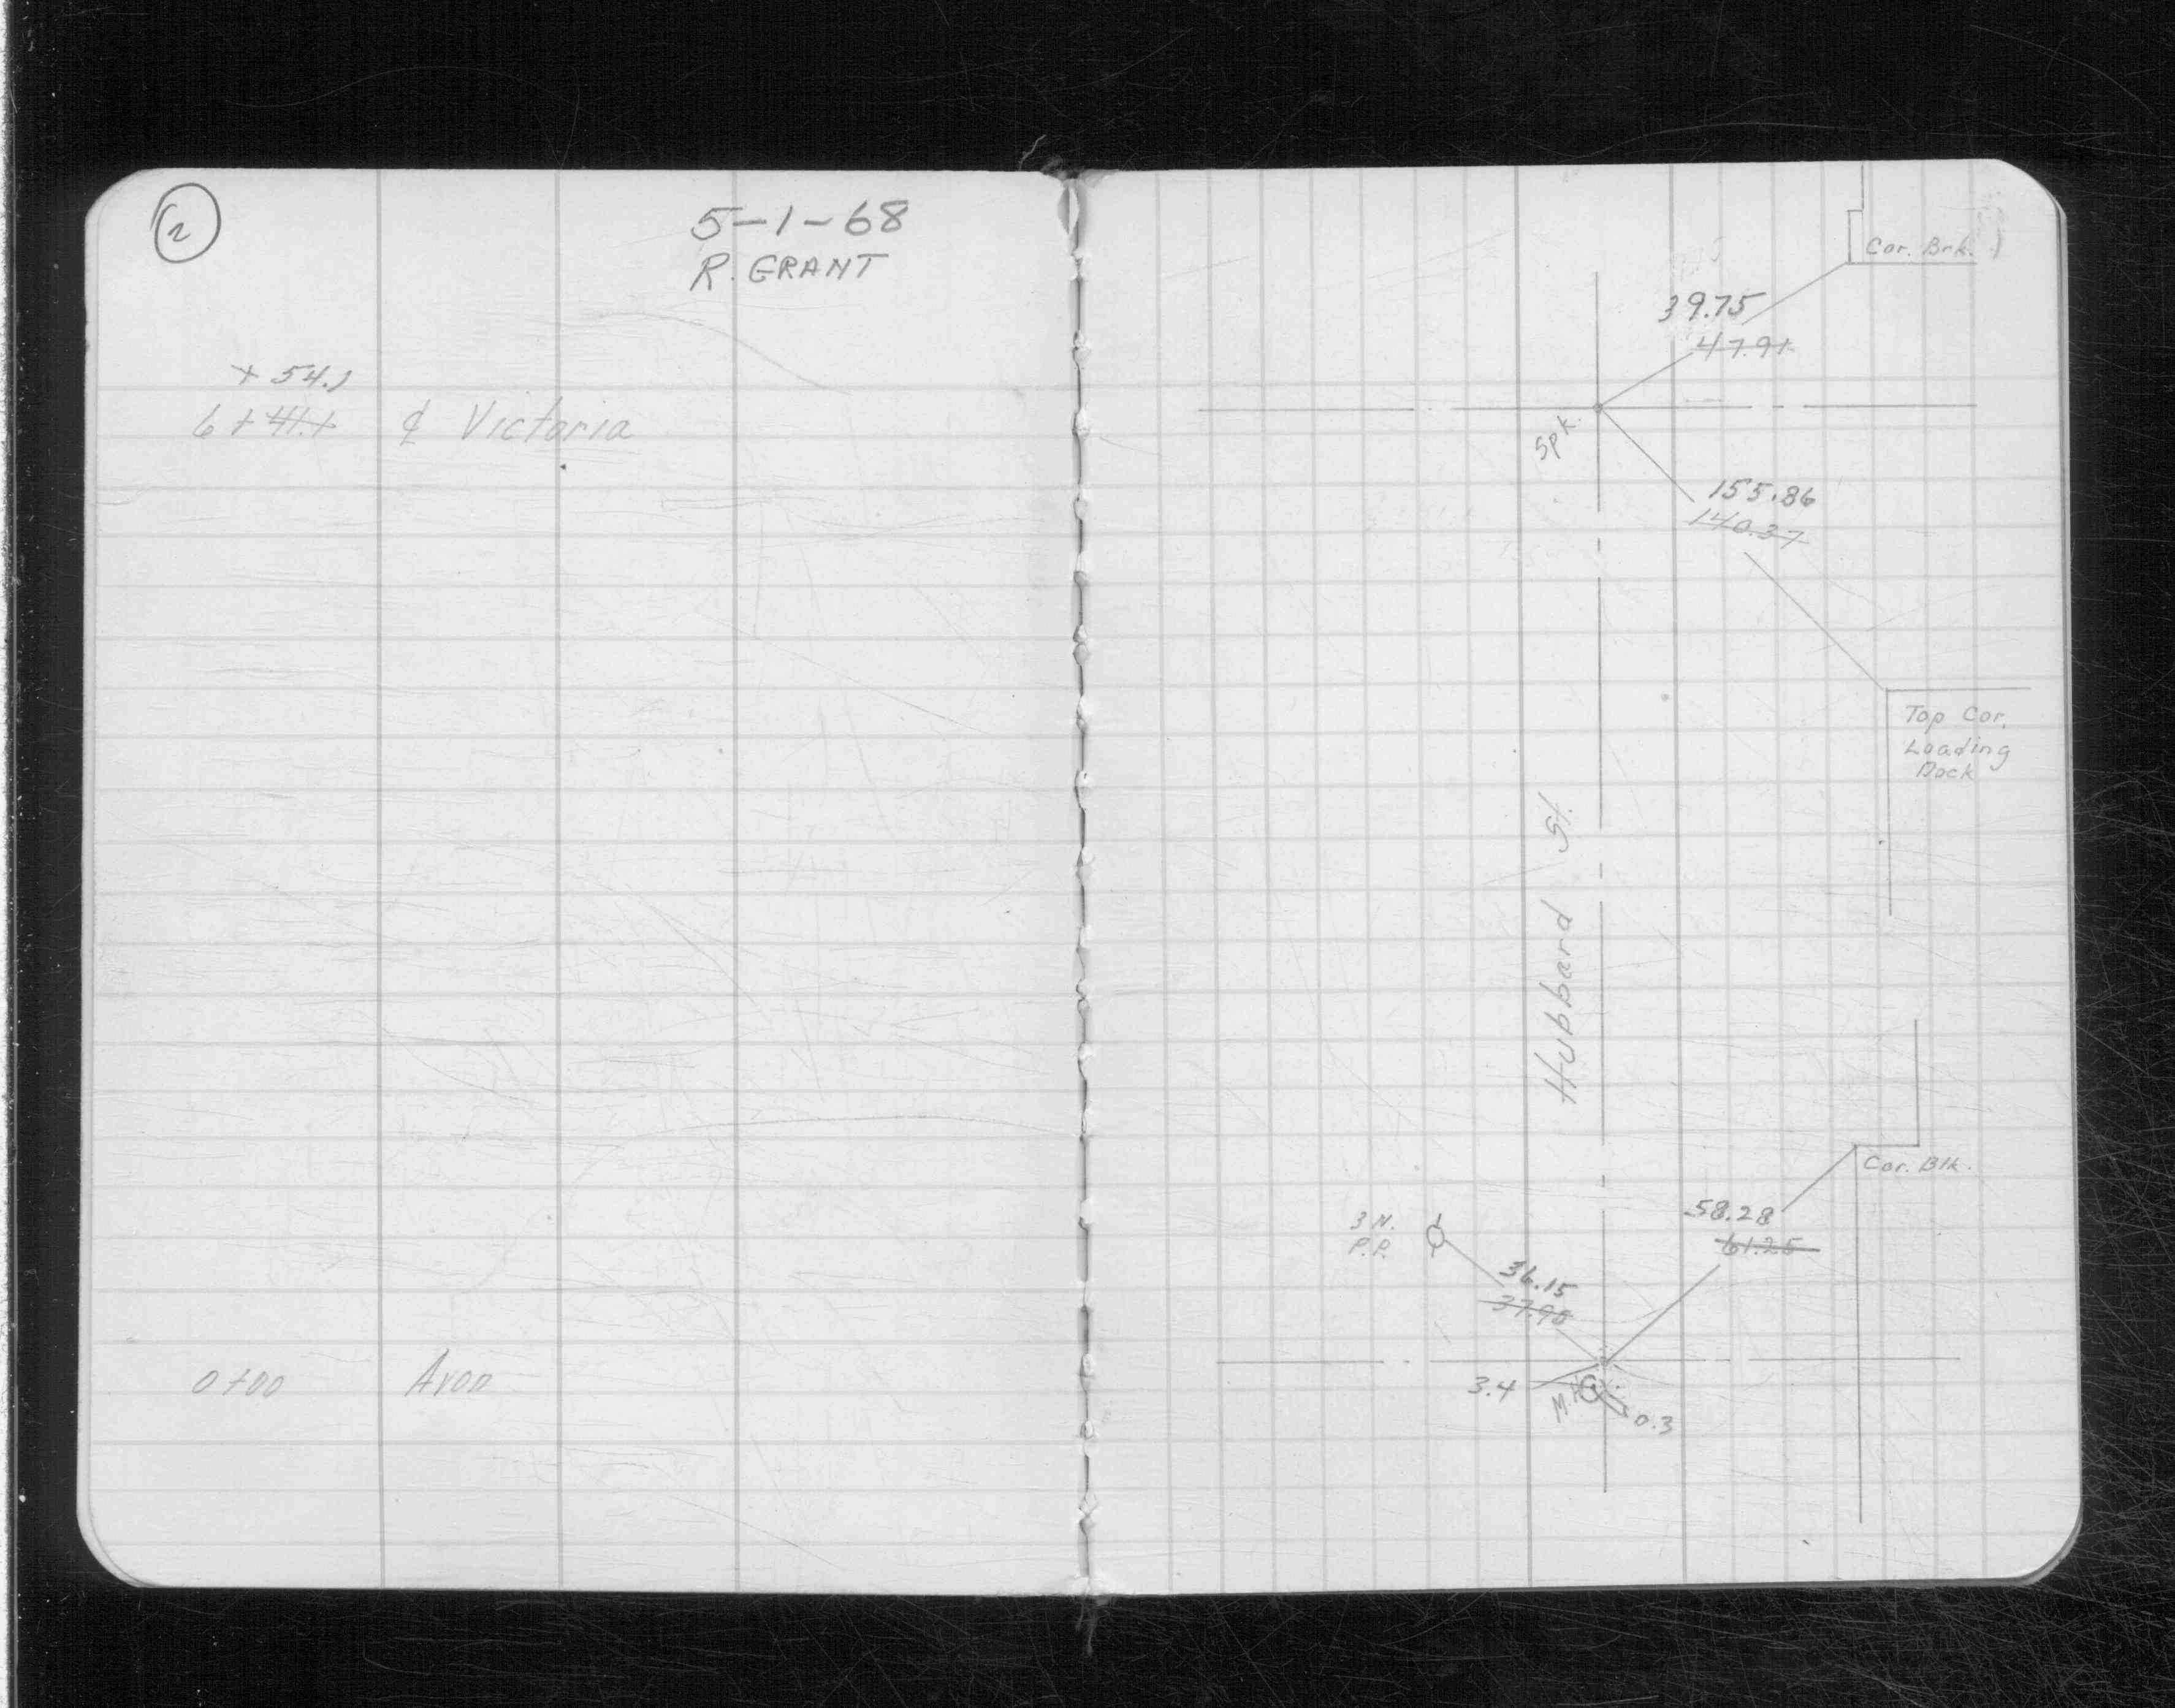 2
5-1-68
R. GRANT
+ 54.1
6+41.1 ¢ Victoria
0+00 Avon
Cor. Brk.
39.75
47.91
Spk.
155.86
140.37
Top Cor.
Loading
Dock
Hubbard St.
Cor. Blk.
58.28
61.25
3 N.
P.P.
36.15
37.98
3.4
M.H.
0.3